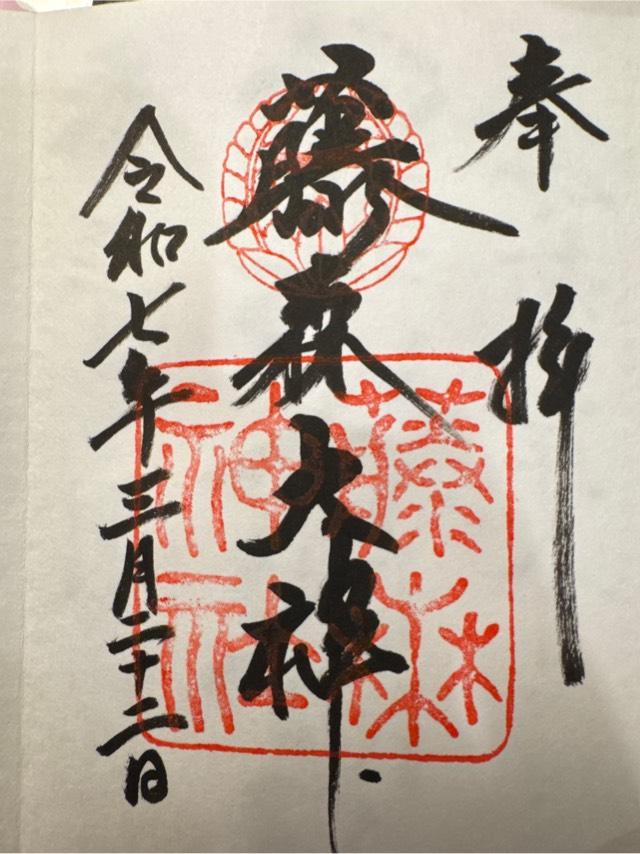 奉拝
藤森大神
令和七年三月二十二日
藤森
神社